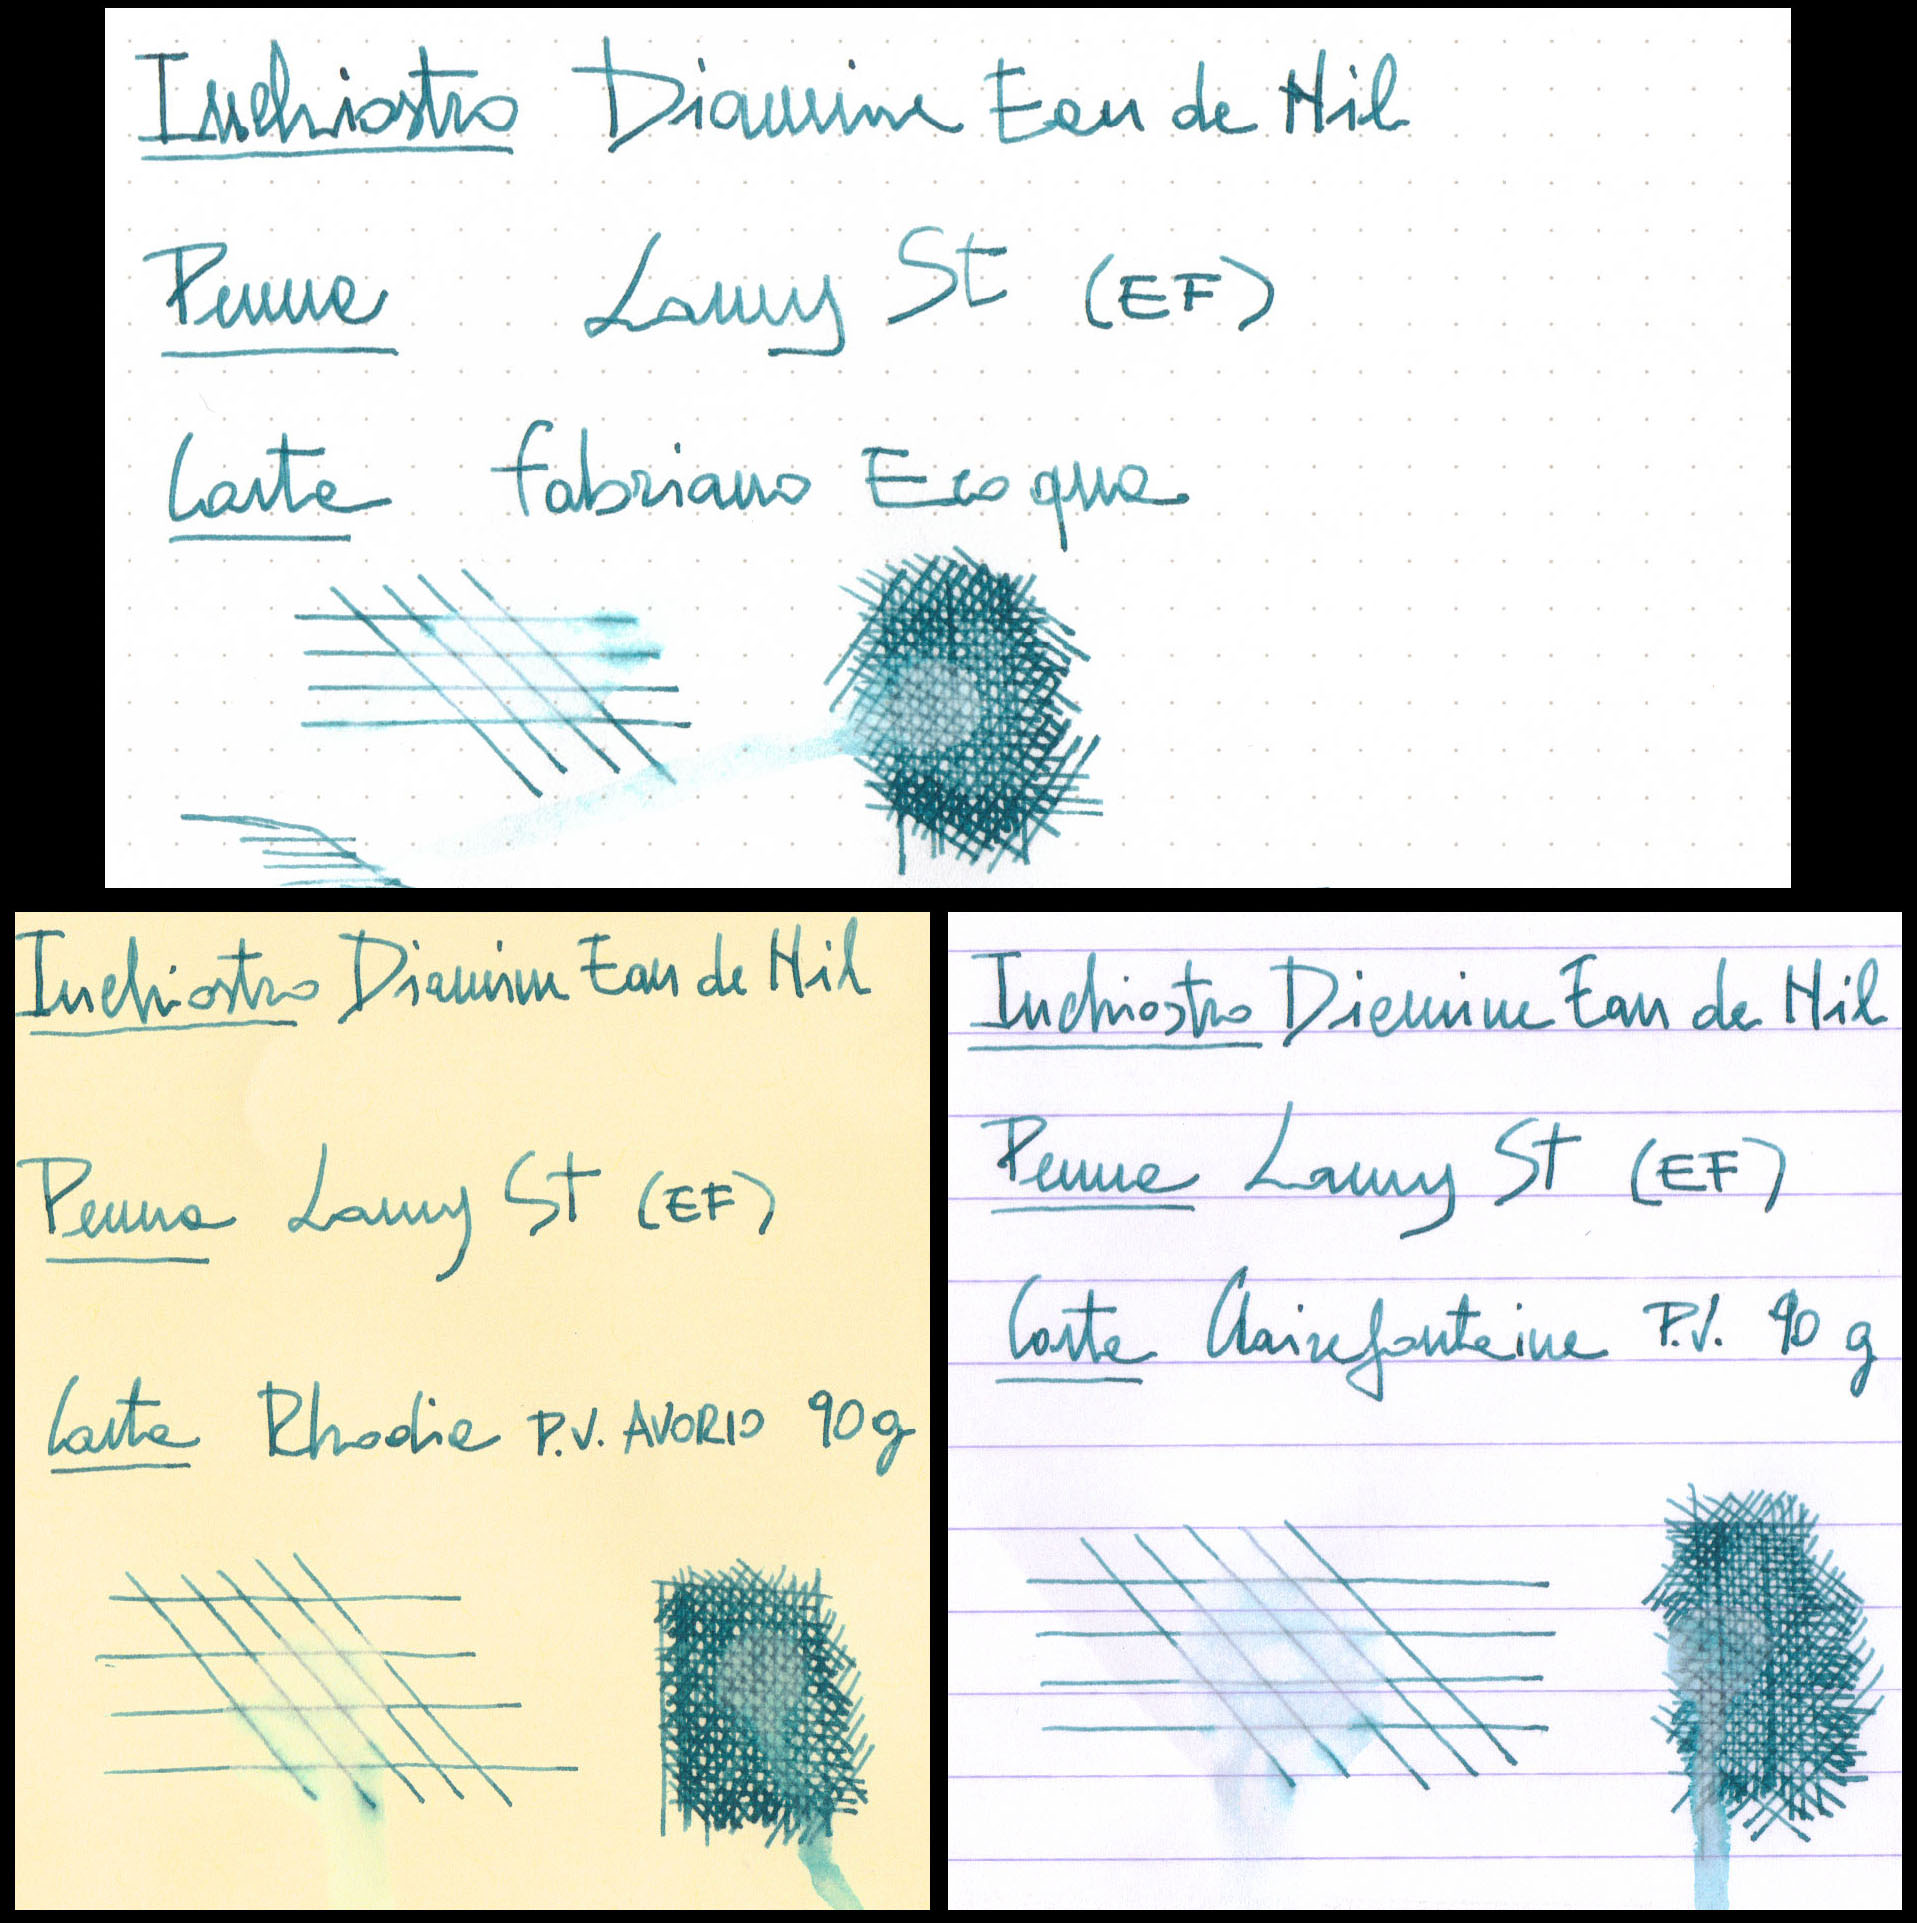 Inchiostro Diamine Eau de Nil
Penna Lamy St (EF)
Carta Fabriano Ecoqua
Inchiostro Diamine Eau de Nil
Penna Lamy St (EF)
Carta Rhodia P.V. AVORIO 90g
Inchiostro Diamine Eau de Nil
Penna Lamy St (EF)
Carta Clairefontaine P.V. 90 g